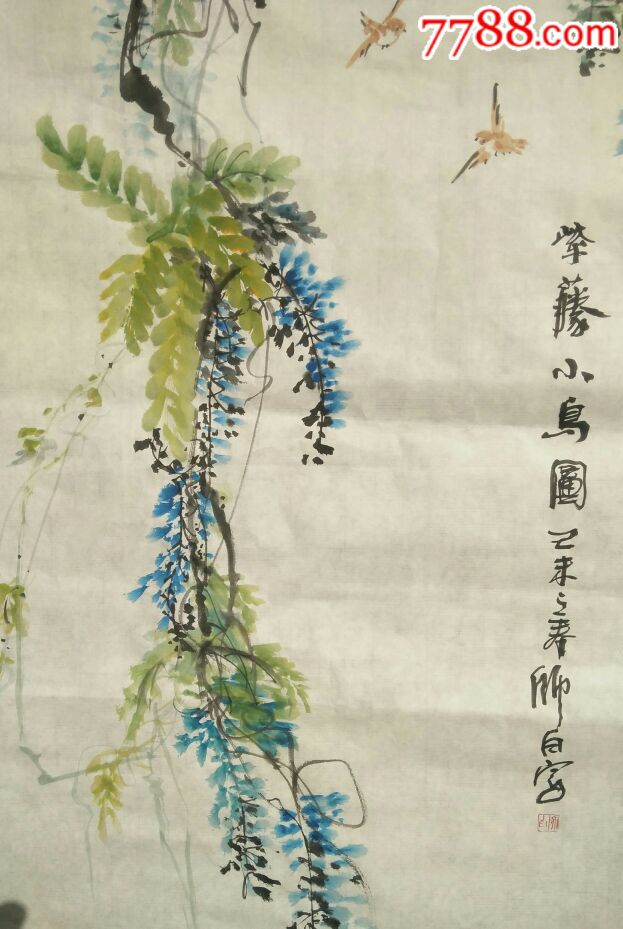 7788.com
紫藤小鳥圖
己未之春師白寫